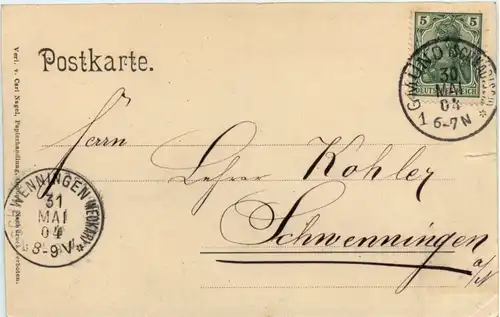 Postkarte.
5
DEUTSCHES REICH
GMÜND (SCHWÄBISCH)
30
MAI
04
1 6-7 N *
Herrn
Lehrer Kohler
Schwenningen
a/N
SCHWENNINGEN (NECKAR)
31
MAI
04
* 8-9 V *
Verl. v. Carl Nagel, Papierhandlung,
verboten.